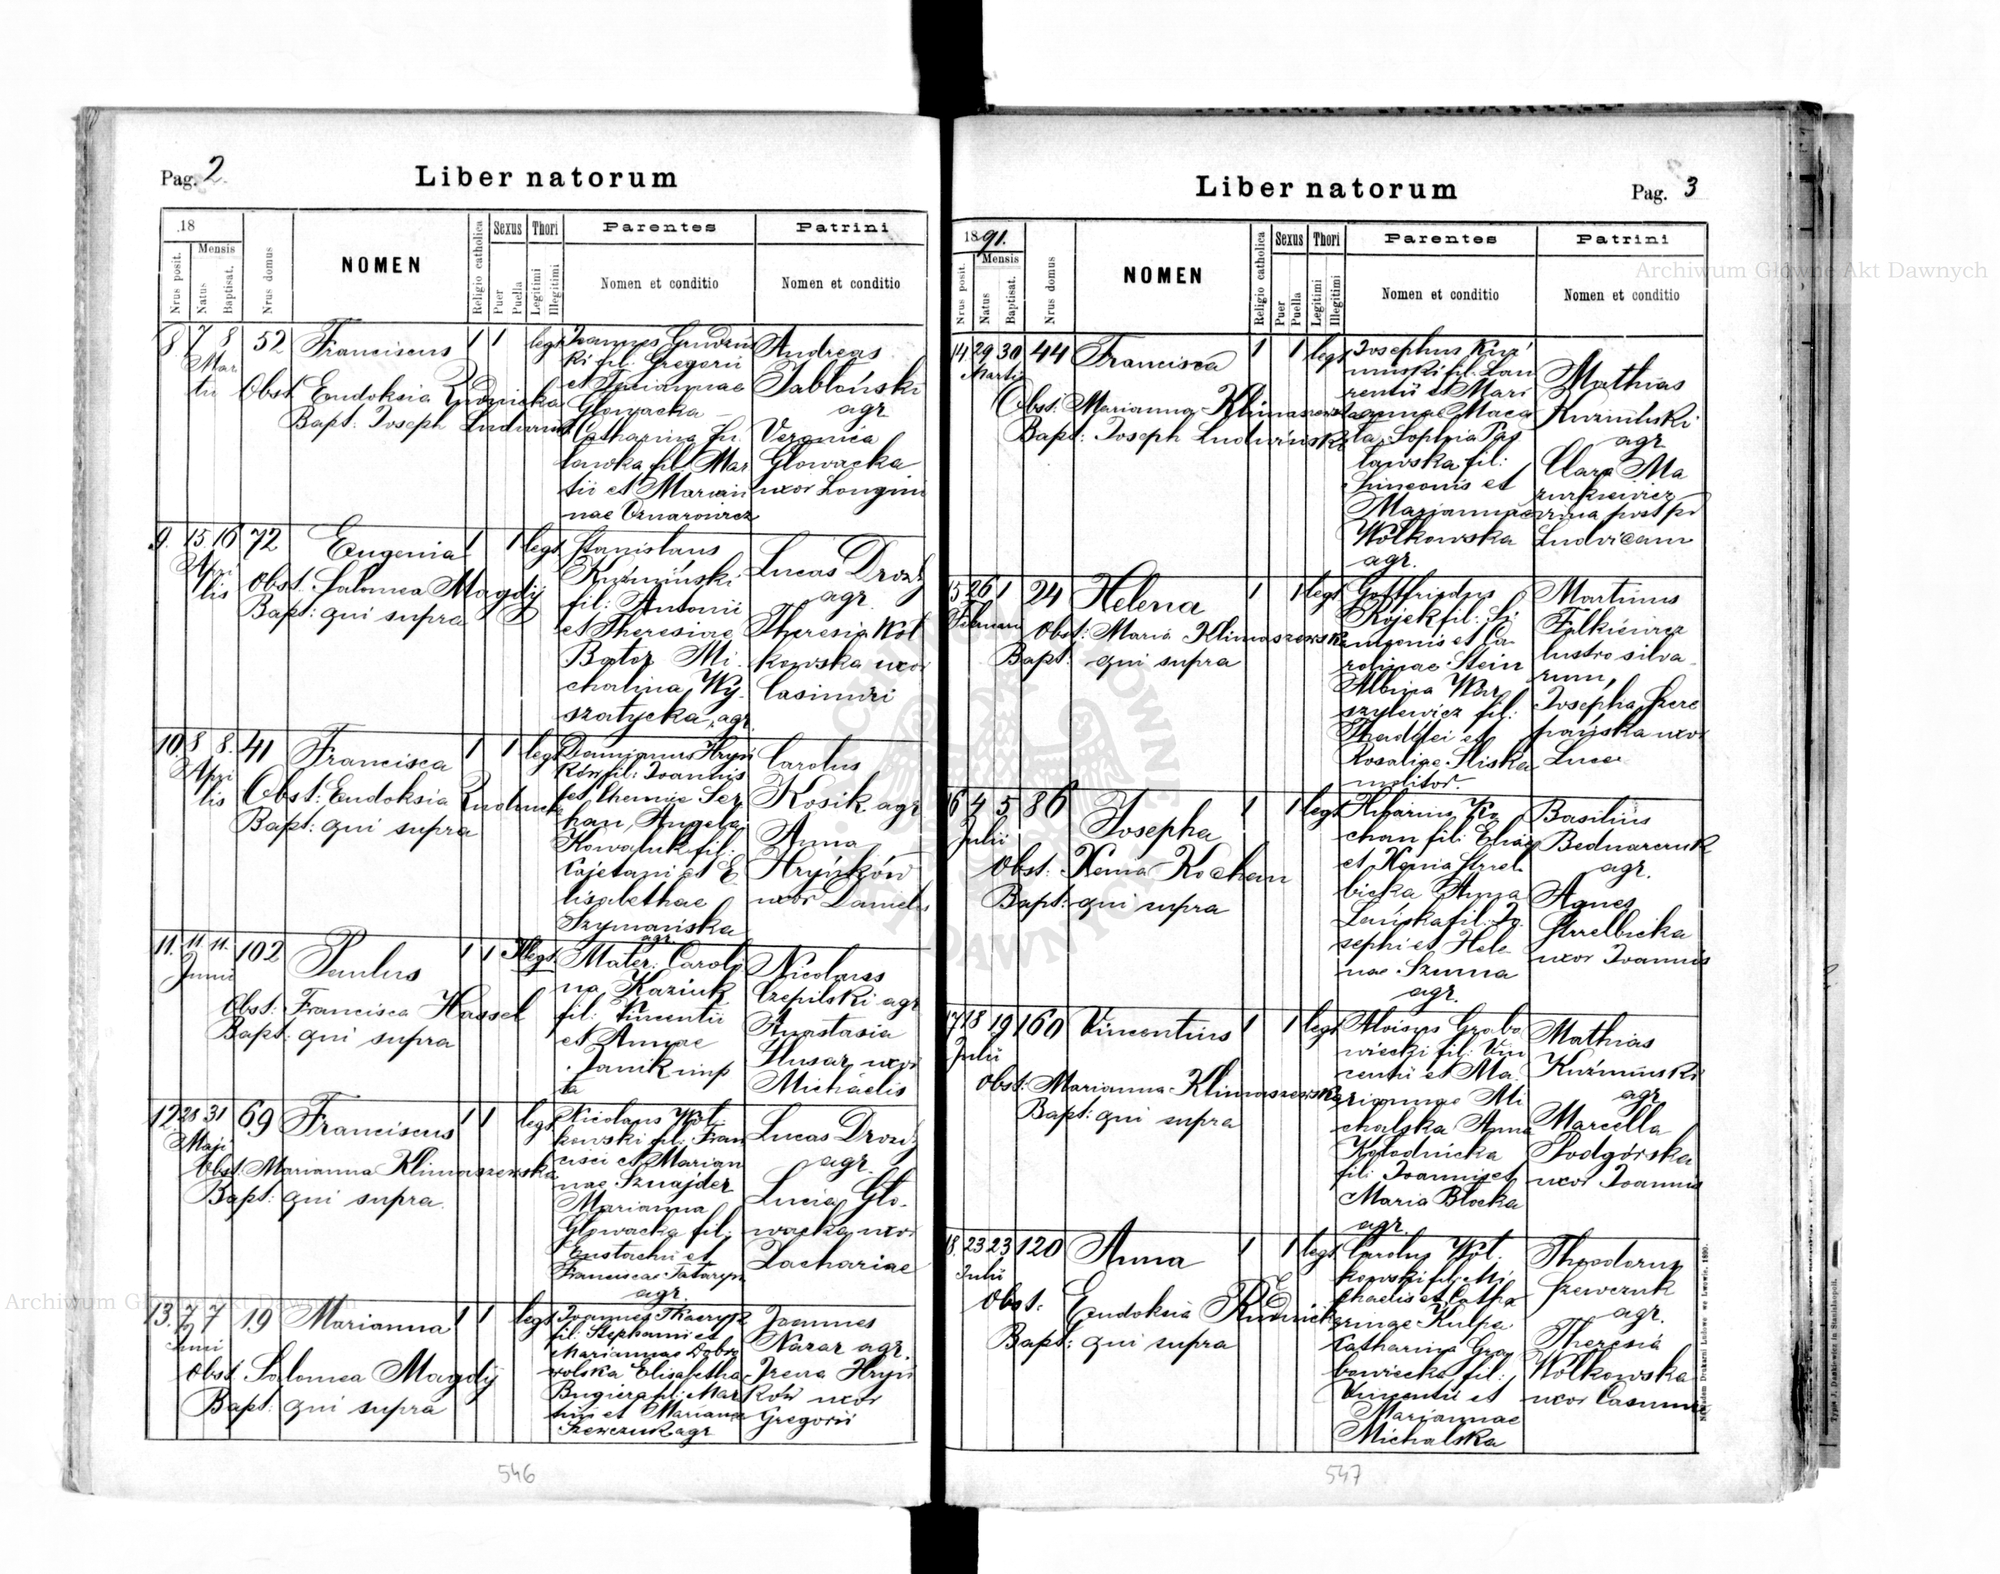 Pag. 2.
Liber natorum
18
Nrus posit.
Mensis
Natus
Baptisat.
Nrus domus
NOMEN
Religio catholica
Sexus
Puer
Puella
Thori
Legitimi
Illegitimi
Parentes
Nomen et conditio
Patrini
Nomen et conditio
8 7 8 52 Franciscus 1 1 legt
Martii
Obst. Eudoksia Rudnicka
Bapt: Joseph Ludwiński
Joannes
ki fil: Gregorii
et
Glowacka
Catharina
fil: Mar
tii et Marian
nae
Andreas
Jabłoński
agr
Veronica
Glowacka
uxor Longini
9. 15 16 72 Eugenia 1 1 legt
Aprilis
Obst: Salomea Magdij
Bapt: qui supra
Stanislaus
Kuźmiński
fil: Antonii
et Theresiae
Bator Mi
chalina Wy
szatycka, agr
Lucas Drozd
agr.
Theresia Woł
kowska uxor
Casimiri
10. 8 8. 41 Francisca 1 1 legt
Aprilis
Obst: Eudoksia Rudnicka
Bapt: qui supra
Damianus Hryń
ków fil: Joannis
et
han, Angela
Kowaluk fil:
Cajetani et E
lisabethae
Szymańska
agr.
Carolus
Kosik agr
Anna
Hryńków
uxor Danielis
11. 11 11. 102 Paulus 1 1 Illegt
Junii
Obst: Francisca Hassel
Bapt: qui supra
Mater: Caroli
na Kaziuk
fil: Vincentii
et Annae
Janik
Nicolaus
Czepilski agr
Anastasia
Husar uxor
Michaelis
12. 28 31 69 Franciscus 1 1 legt
Maji
Obst. Marianna Klimaszewska
Bapt: qui supra.
Nicolaus Woł
kowski fil: Fran
cisci et Marian
nae Sznajder
Marianna
Glowacka fil:
Eustachii et
Franciscae Tataryn
agr.
Lucas Drozd
agr.
Lucia Gło
wacka uxor
Zachariae
13. 7 7 19 Marianna 1 1 legt
Junii
Obst Salomea Magdij
Bapt: qui supra
Joannes Tkaczyk
fil: Stephanii et
Mariannae Dobro
wolska Elisabetha
Bugiera fil: Mar
tini et Marianae
Szewczuk agr
Joannes
Nazar agr.
Irena Hryń
ków uxor
Gregorii
546
Liber natorum
Pag. 3
1891.
Nrus posit.
Mensis
Natus
Baptisat.
Nrus domus
NOMEN
Religio catholica
Sexus
Puer
Puella
Thori
Legitimi
Illegitimi
Parentes
Nomen et conditio
Patrini
Nomen et conditio
14 29 30 44 Francisca 1 1 legt
Martii
Obst: Marianna Klimaszewska
Bapt: Joseph Ludwiński
Josephus Kuź
miński fil: Lau
rentii et Mari
annae Maca
ła, Sophia Pas
ławska fil:
Simeonis et
Mariannae
Wołkowska
agr.
Mathias
Kuźmiński
agr
Clara Ma
zurkiewicz
Ludvicum
15 26 1 24 Helena 1 1 legt
Februarii
Obst: Maria Klimaszewska
Bapt: qui supra
Gottfriedus
Rojek fil: Si
meonis et Ca
rolinae Stein
Albina War
szylewicz fil:
Thaddei et
Rosaliae Sliska
molitor.
Martinus
Falkiewicz
lustro silva
rum,
Josepha Szcze
pańska uxor
Lucae
16 4 5 86 Josepha 1 1 legt
Julii
Obst: Xenia Kochan
Bapt: qui supra
Hilarius Ko
chan fil: Eliae
et Xenia Strzel
bicka Anna
Lańska fil: Jo
sephi et Hele
nae Szuma
agr.
Basilius
Bednarczuk
agr.
Agnes
Strzelbicka
uxor Joannis
17 18 19 160 Vincentius 1 1 legt
Julii
Obst: Marianna Klimaszewska
Bapt: qui supra
Aloisus Grabo
wiecki fil: Vin
centii et Ma
riannae Mi
chalska Anna
Kołodnicka
fil: Joannis et
Maria Błocka
agr.
Mathias
Kuźmiński
agr
Marcella
Podgórska
uxor Joannis
18. 23 23 120 Anna 1 1 legt
Julii
Obst. Eudoksia Rudnicka
Bapt: qui supra
Carolus Woł
kowski fil: Mi
chaelis et Catha
rinae Kulpa
Catharina Gra
bowiecka fil:
Vincentii et
Mariannae
Michalska
Theodorus
Szewczuk
agr.
Theresia
Wołkowska
uxor Casimiri
Nakładem Drukarni Ludowej we Lwowie. 1890.
547
Archiwum Główne Akt Dawnych
Archiwum Główne Akt Dawnych